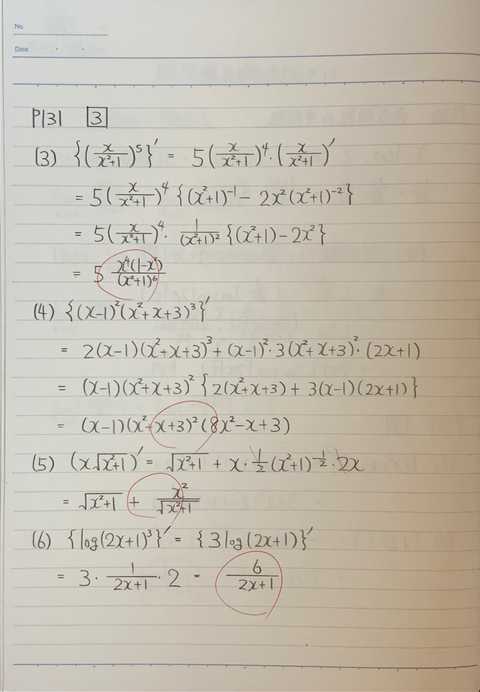 No.
Date
P131 3
(3) {(x/(x²+1))⁵}' = 5(x/(x²+1))⁴·(x/(x²+1))'
= 5(x/(x²+1))⁴{(x²+1)⁻¹ - 2x²(x²+1)⁻²}
= 5(x/(x²+1))⁴· 1/(x²+1)² {(x²+1)-2x²}
= 5 x⁴(1-x²)/(x²+1)⁶
(4) {(x-1)²(x²+x+3)³}'
= 2(x-1)(x²+x+3)³+(x-1)²·3(x²+x+3)²·(2x+1)
= (x-1)(x²+x+3)²{2(x²+x+3) + 3(x-1)(2x+1)}
= (x-1)(x²+x+3)²(8x²-x+3)
(5) (x√(x²+1))' = √(x²+1) + x·1/2(x²+1)^(-1/2)·2x
= √(x²+1) + x²/√(x²+1)
(6) {log(2x+1)³}' = {3log(2x+1)}'
= 3·1/(2x+1)·2 = 6/(2x+1)